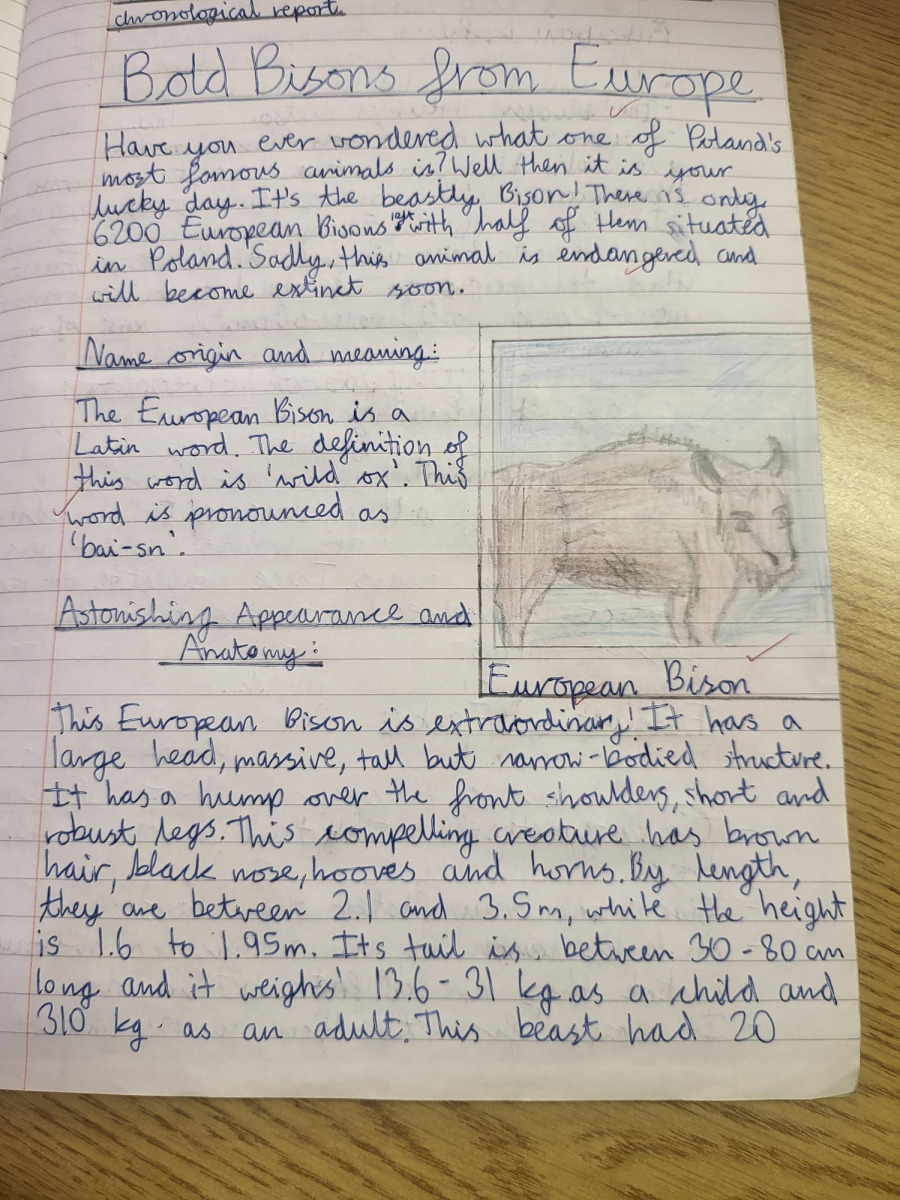 chronological report.
Bold Bisons from Europe
Have you ever wondered what one of Poland's
most famous animals is? Well then it is your
lucky day. It's the beastly Bison! There is only
6200 European Bisons left with half of them situated
in Poland. Sadly, this animal is endangered and
will become extinct soon.
Name origin and meaning:
The European Bison is a
Latin word. The definition of
this word is 'wild ox'. This
word is pronounced as
'bai-sn'.
Astonishing Appearance and
Anatomy:
European Bison
This European Bison is extraordinary! It has a
large head, massive, tall but narrow-bodied structure.
It has a hump over the front shoulders, short and
robust legs. This compelling creature has brown
hair, black nose, hooves and horns. By length,
they are between 2.1 and 3.5m, while the height
is 1.6 to 1.95m. Its tail is between 30-80 cm
long and it weighs 13.6-31 kg as a child and
310 kg. as an adult. This beast had 20